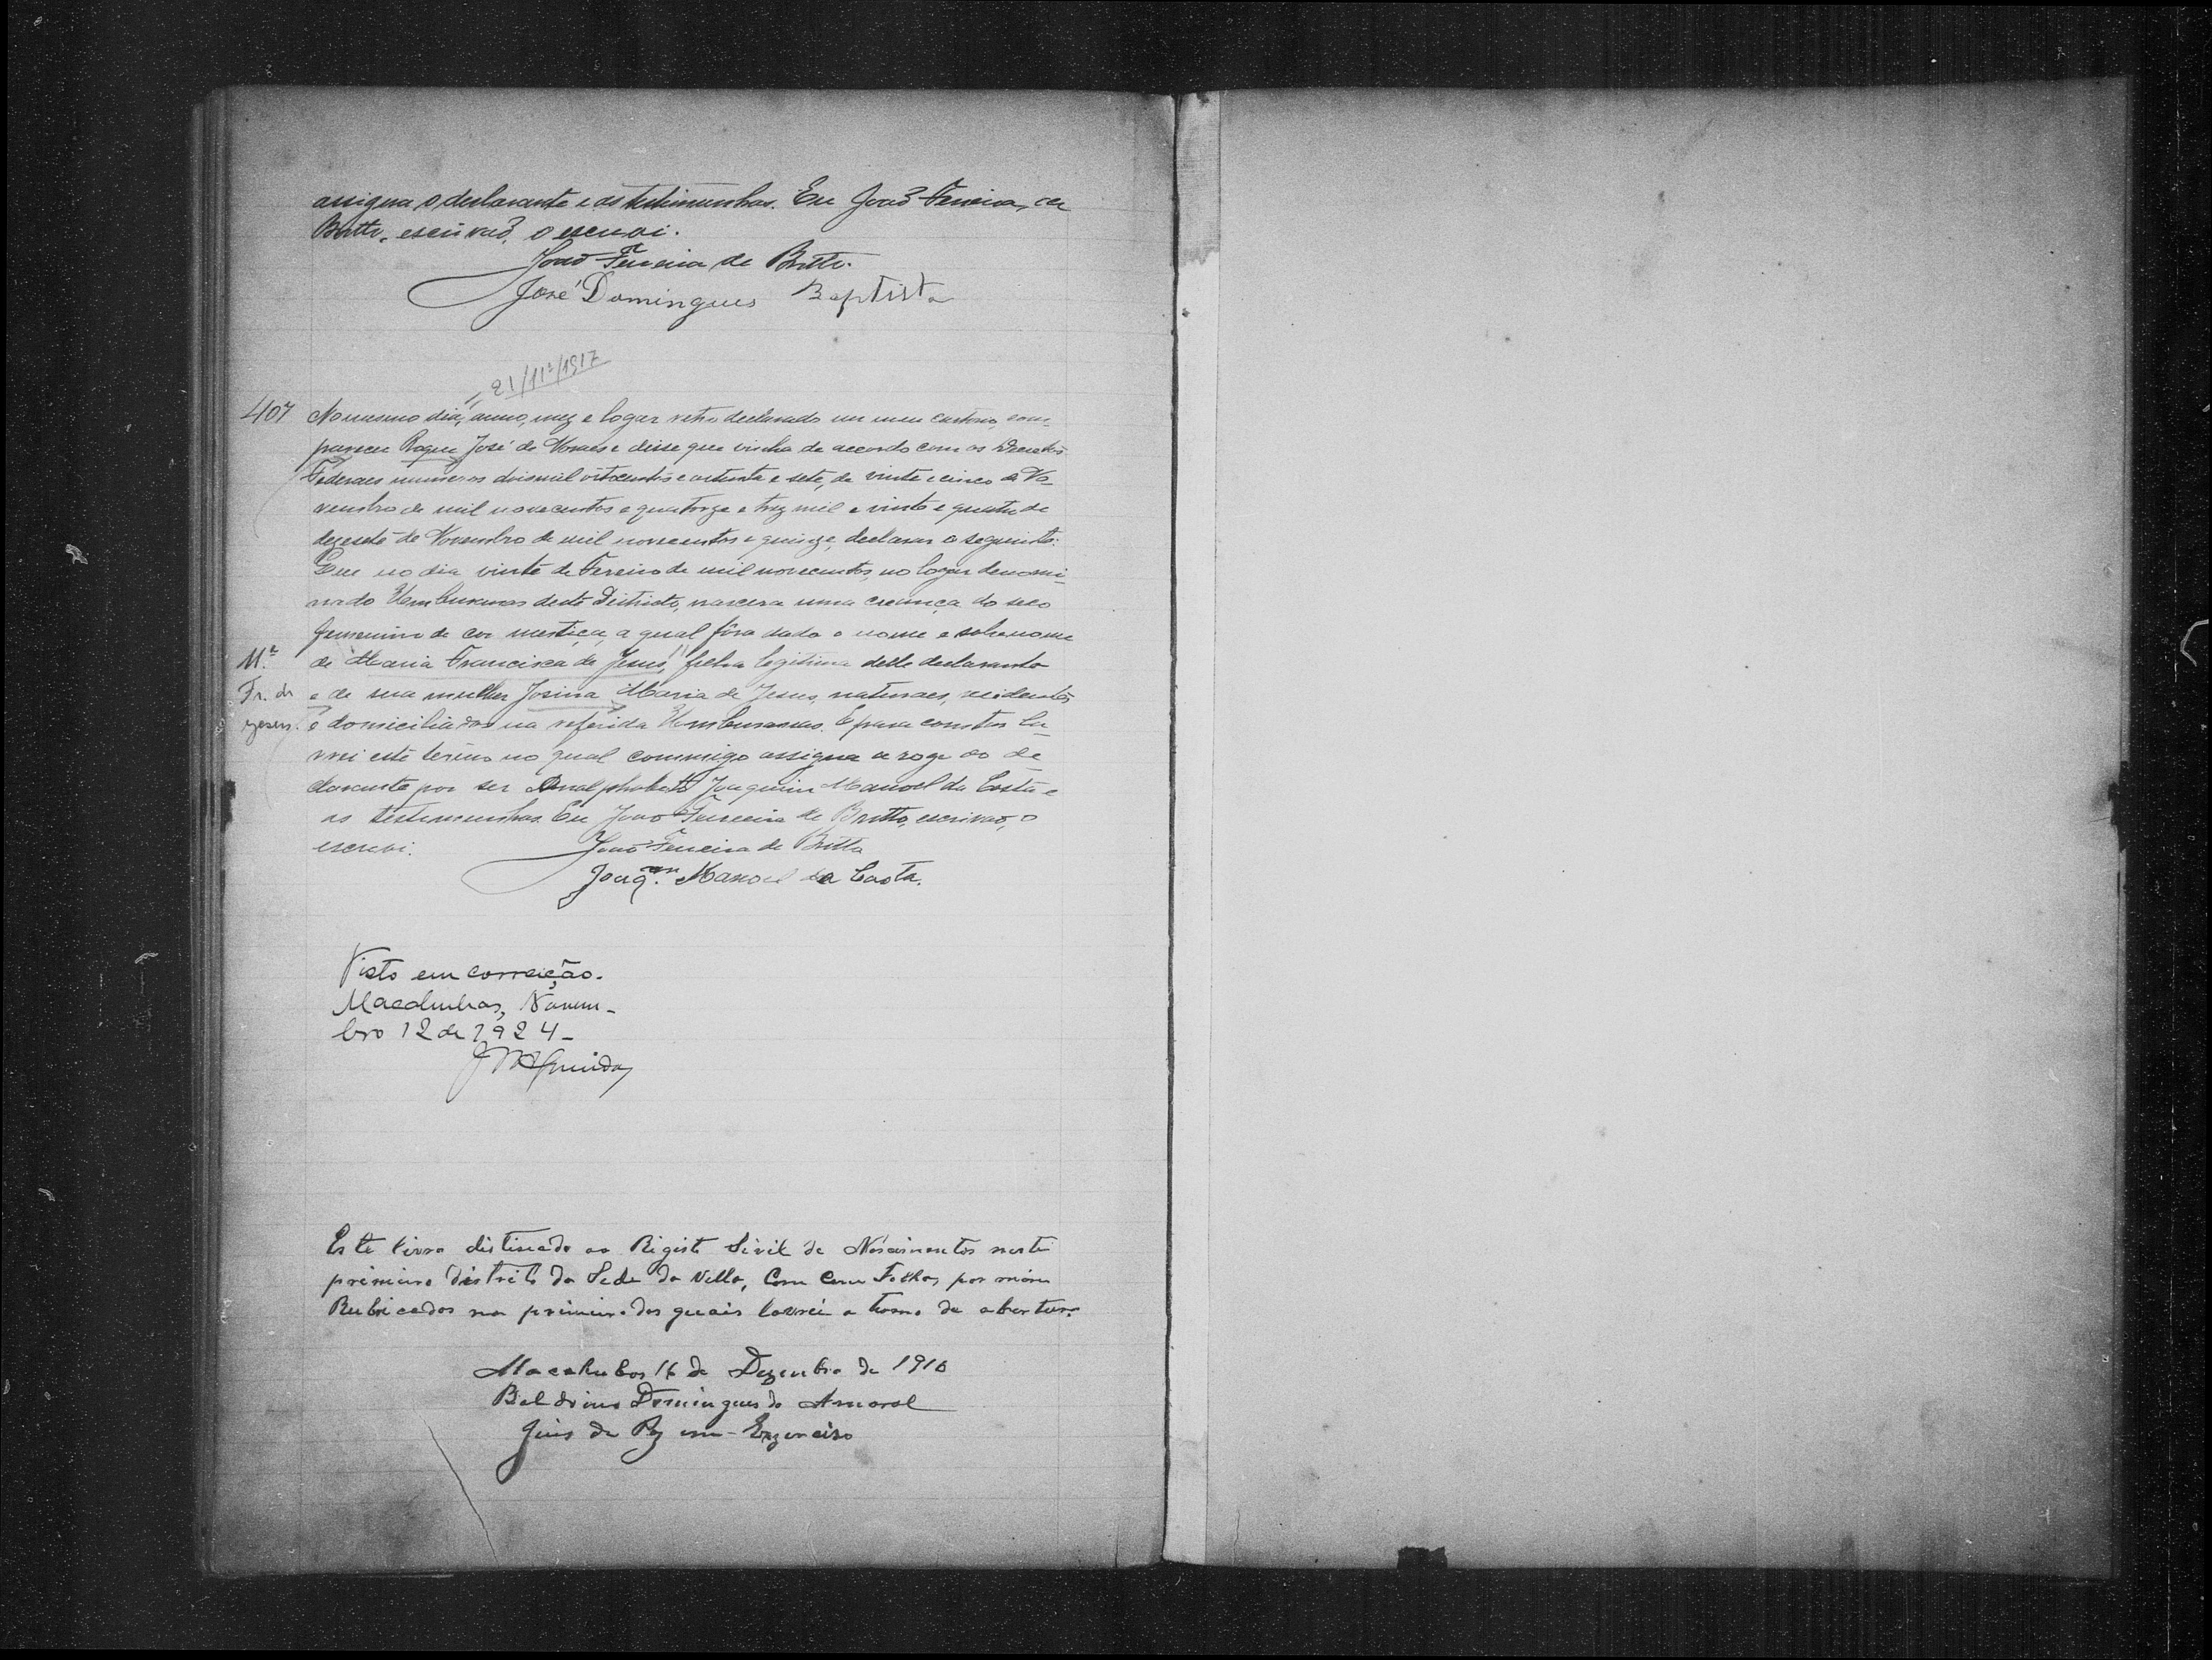 assigna o declarante e as testimunhas. Eu João Ferreira de
Britto, escrivaõ, o escrevi.
João Ferreira de Britto.
José Domingues Baptista
21/11/1917
407 No mesmo dia, anno, mez e logar retro declarado em meu cartorio, com-
pareceu Roque José de Novaes e disse que vinha de accordo com os Decretos
Federaes numeros dois mil oitocentos e oitenta e sete, de vinte e cinco de No-
vembro de mil novecentos e quatorze e trez mil e vinte e quatro de
dezesete de Novembro de mil novecentos e quinze, declarar o seguinte:
Que no dia vinte de Fevereiro de mil novecentos, no logar denomi-
nado Umburanas deste Districto, nascera uma creança do sexo
femenino de cor mestiça, a qual fôra dado o nome e sobrenome
Mª. de Maria Francisca de Jesus, filha legitima delle declarante
Fr. de e de sua mulher Josina Maria de Jesus, naturaes, residentes
Jesus. e domiciliados na referida Umburanas. E para constar la-
vrei este termo no qual commigo assigna a rogo do de-
clarante por ser analphabeto Joaquim Manoel da Costa e
as testemunhas. Eu João Ferreira de Britto, escrivaõ, o
escrevi. João Ferreira de Britto
Joaqm. Manoel da Costa.
Visto em correição.
Macahubas, Novem-
bro 12 de 1924-
Este livro distinado ao Rigisto Sivil de Nascimentos neste
primeiro distrito da Sede da Villa, Com Cem Folhas, por mim
Rubricados na primeira das quais lavrei o termo de abertura.
Macahubas 16 de Dezembro de 1916
Baldoino Domingues do Amaral
Juis de Paz em Exzercicio